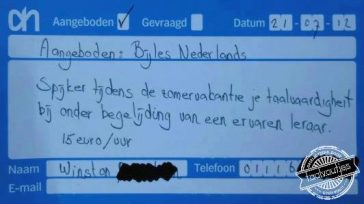 ah Aangeboden ✓ Gevraagd Datum 21-07-12
Aangeboden: Bijles Nederlands
Spijker tijdens de zomervakantie je taalvaardigheid
bij onder begelijding van een ervaren leraar.
15 euro/uur
Naam Winston Telefoon 0111
E-mail
taalvoutjes